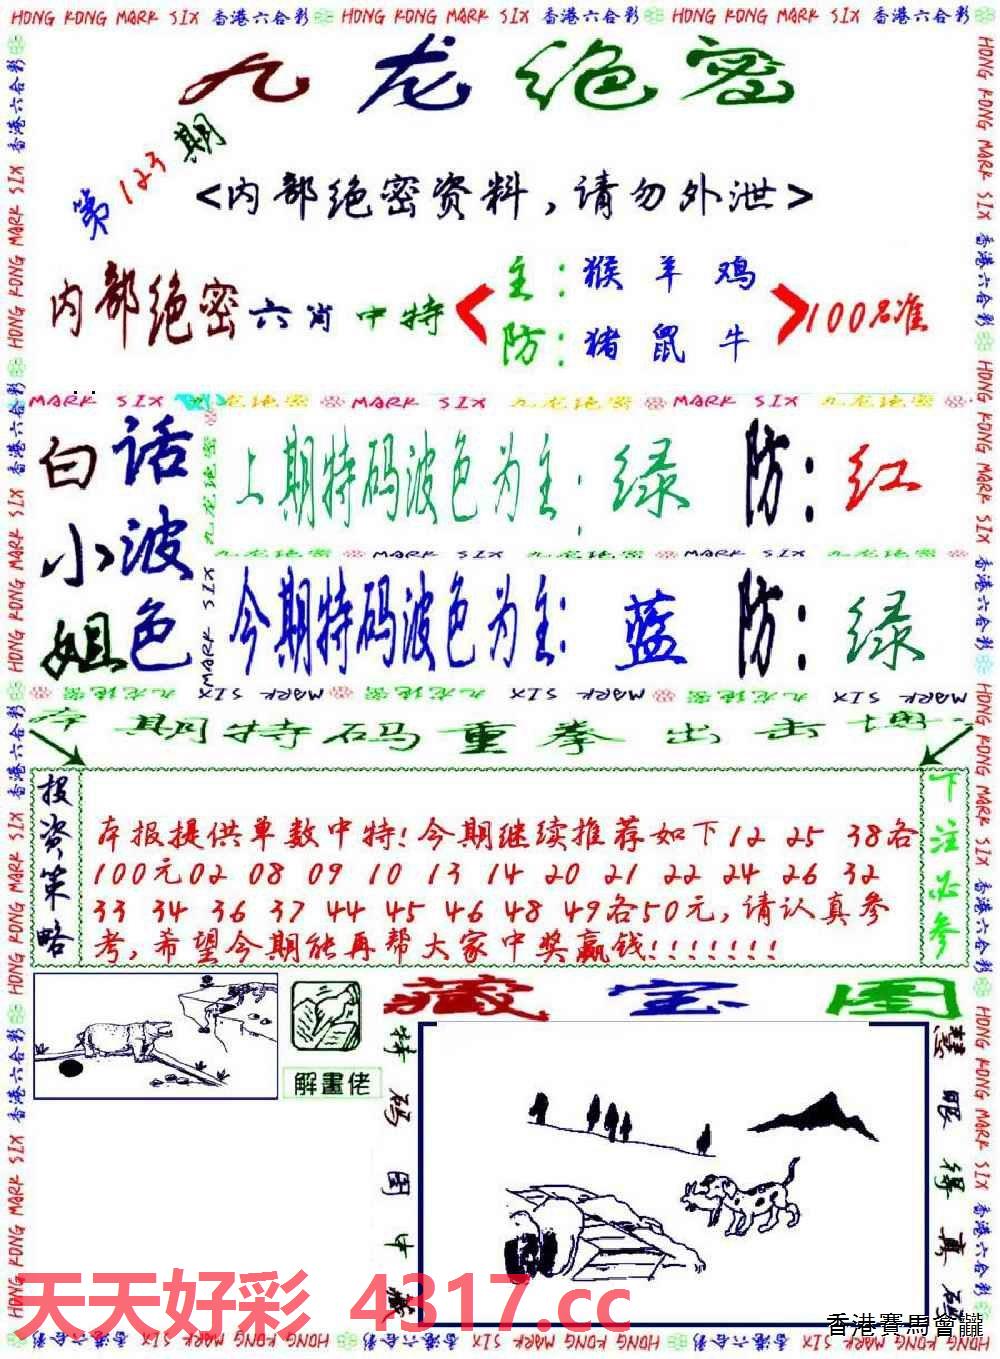 HONG KONG MARK SIX 香港六合彩 HONG KONG MARK SIX 香港六合彩 HONG KONG MARK SIX 香港六合彩
九龙绝密
第123期
<内部绝密资料,请勿外泄>
内部绝密六肖中特
主:猴 羊 鸡
防:猪 鼠 牛
100%准
MARK SIX 九龙绝密 MARK SIX 九龙绝密 MARK SIX 九龙绝密
白小姐
话波色
上期特码波色为主:绿 防:红
九龙绝密 MARK SIX 九龙绝密 MARK SIX 九龙绝密
今期特码波色为主:蓝 防:绿
本期特码重拳出击
投资策略
本报提供单数中特!今期继续推荐如下12 25 38各
100元02 08 09 10 13 14 20 21 22 24 26 32
33 34 36 37 44 45 46 48 49各50元,请认真参
考,希望今期能再帮大家中奖赢钱!!!!!!!
下注必参
解畫佬
藏宝图
特码图中藏
慧眼得真码
天天好彩 4317.cc
香港賽馬會